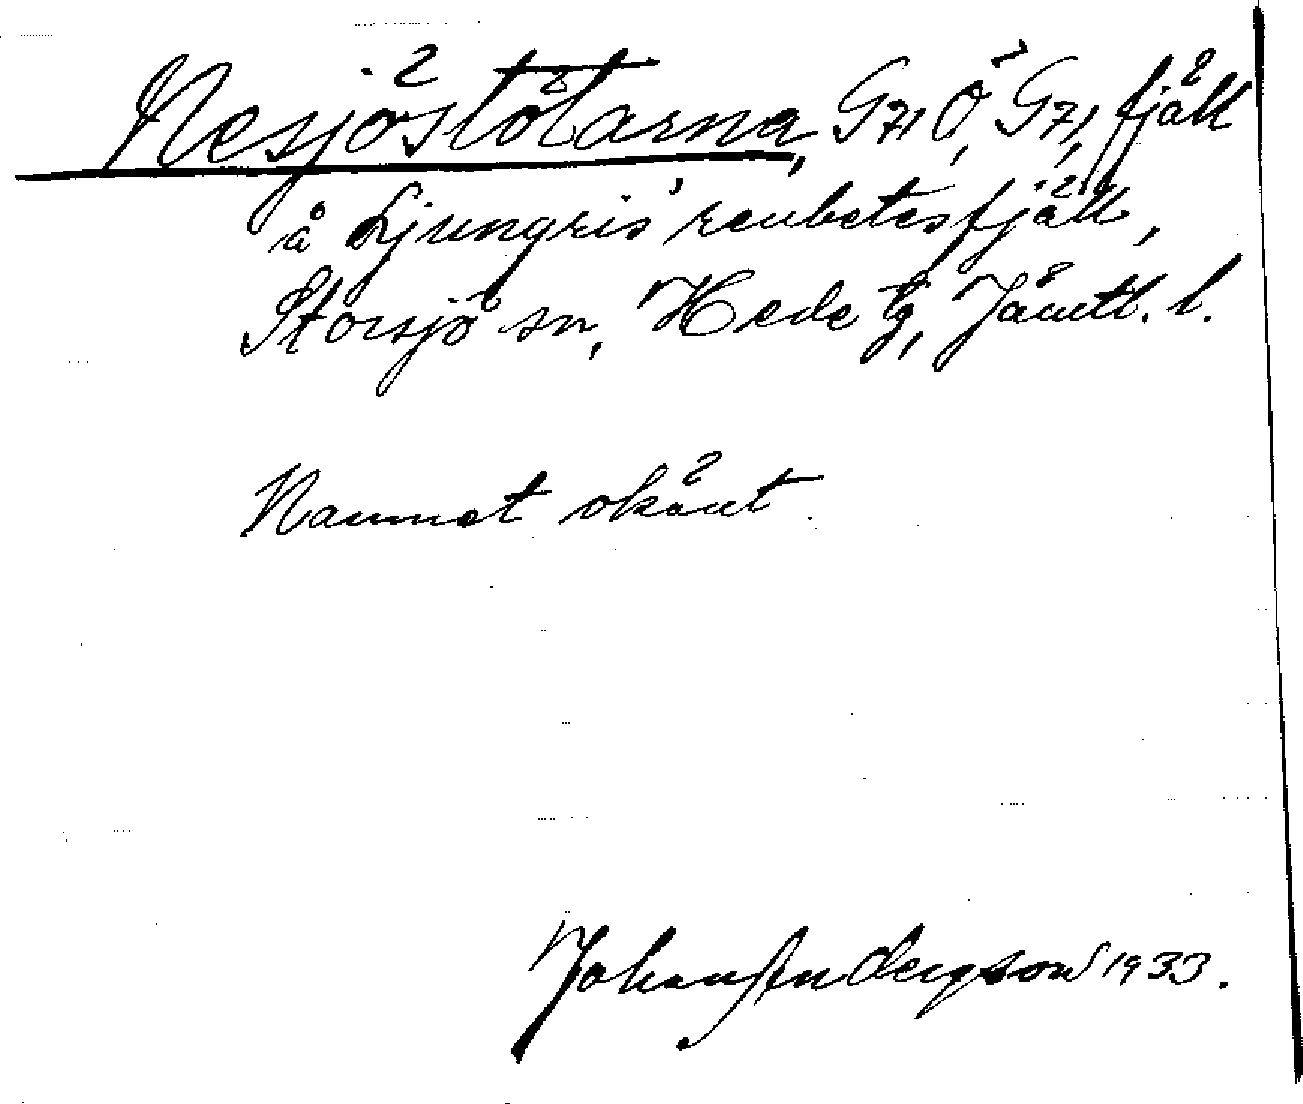 Nesjöstötarna, G71 Ö, G71, fjäll
å Ljungris' renbetesfjäll,
Storsjö sn, Hede tg, Jämtl. l.
Namnet okänt.
Johan Andersson 1933.